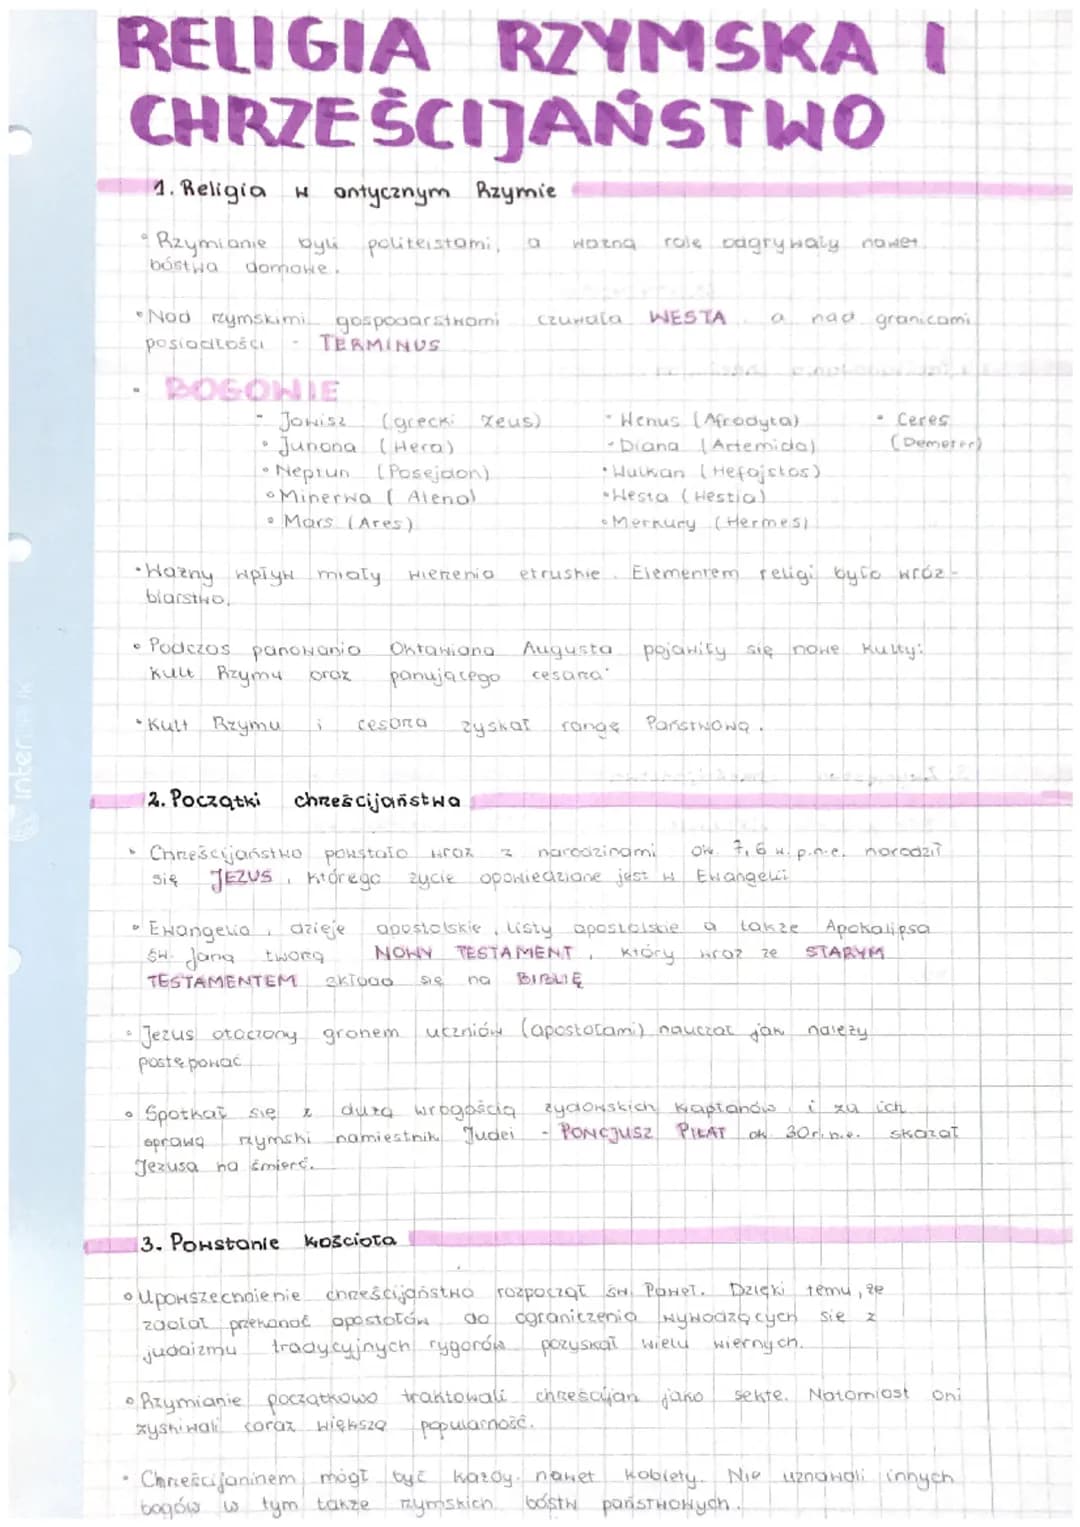 RELIGIA RZYMSKA I
CHRZEŚCIJAŃSTWO
1. Religia w antycznym Rzymie
• Rzymianie byli politeistami, a ważną rolę odgrywały nawet
bóstwa domowe.
• Nad rzymskimi gospodarstwami czuwała WESTA a nad granicami
posiadłości - TERMINUS
• BOGOWIE
• Jowisz (grecki Zeus)
• Junona (Hera)
• Neptun (Posejdon)
• Minerwa (Atena)
• Mars (Ares)
• Wenus (Afrodyta)
• Diana (Artemida)
• Wulkan (Hefajstos)
• Westa (Hestia)
• Merkury (Hermes)
• Ceres
(Demeter)
• Ważny wpływ miały wierzenia etruskie. Elementem religi było wróż-
biarstwo.
• Podczas panowania Oktawiana Augusta pojawiły się nowe kulty:
kult Rzymu oraz panującego cesarza.
• Kult Rzymu i cesarza zyskał rangę Państwową.
2. Początki chrześcijaństwa
• Chrześcijaństwo powstało wraz z narodzinami ok. 7, 6 w. p.n.e. narodził
się JEZUS, którego życie opowiedziane jest w Ewangelii
• Ewangelia, dzieje apostolskie, listy apostolskie a także Apokalipsa
św. Jana tworzą NOWY TESTAMENT, który wraz ze STARYM
TESTAMENTEM składa się na BIBLIĘ
• Jezus otoczony gronem uczniów (apostołami) nauczał jak należy
postępować
• Spotkał się z dużą wrogością żydowskich kapłanów i za ich
sprawą rzymski namiestnik Judei - PONCJUSZ PIŁAT ok. 30 r. n.e. skazał
Jezusa na śmierć.
3. Powstanie kościoła
• Upowszechnienie chrześcijaństwa rozpoczął św. Paweł. Dzięki temu, że
zdołał przekonać apostołów do ograniczenia wywodzących się z
judaizmu tradycyjnych rygorów pozyskał wielu wiernych.
• Rzymianie początkowo traktowali chrześcijan jako sektę. Natomiast oni
zyskiwali coraz większą popularność.
• Chrześcijaninem mógł być każdy, nawet kobiety. Nie uznawali innych
bogów w tym także rzymskich bóstw państwowych.